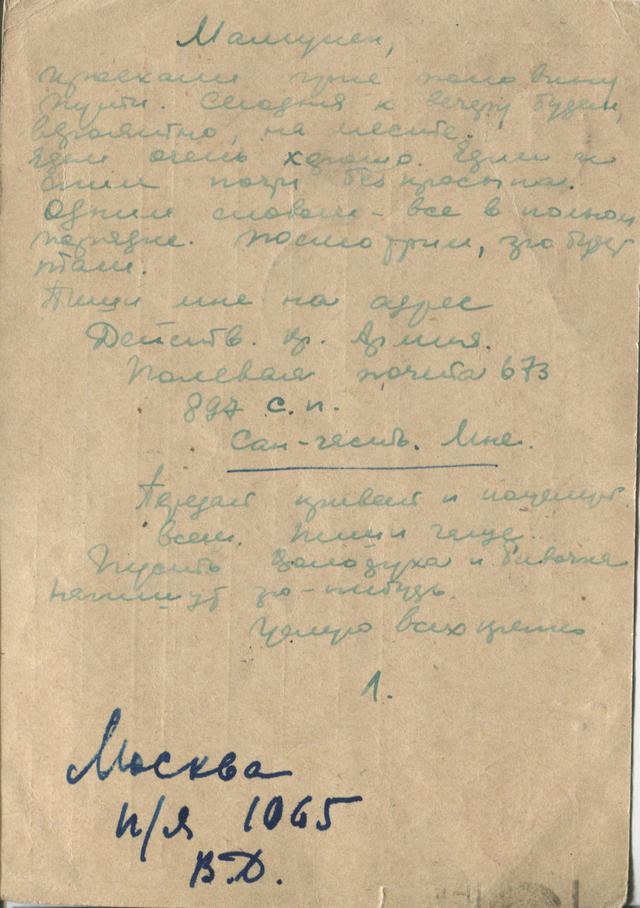 Мамулен,
проехали уже половину
пути. Сегодня к вечеру будем,
вероятно, на месте.
Едем очень хорошо. Едим и
спим почти без просыпа.
Одним словом – все в полном
порядке. Посмотрим, что будет
там.
Пиши мне на адрес
Действ. Кр. Армия.
Полевая почта 673
897 с.п.
Сан-часть. Мне.
Передай привет и поцелуй
всем. Пиши чаще.
Пусть и
напишут что-нибудь.
Целую всех крепко
Л.
Москва
п/я 1065
В.Д.